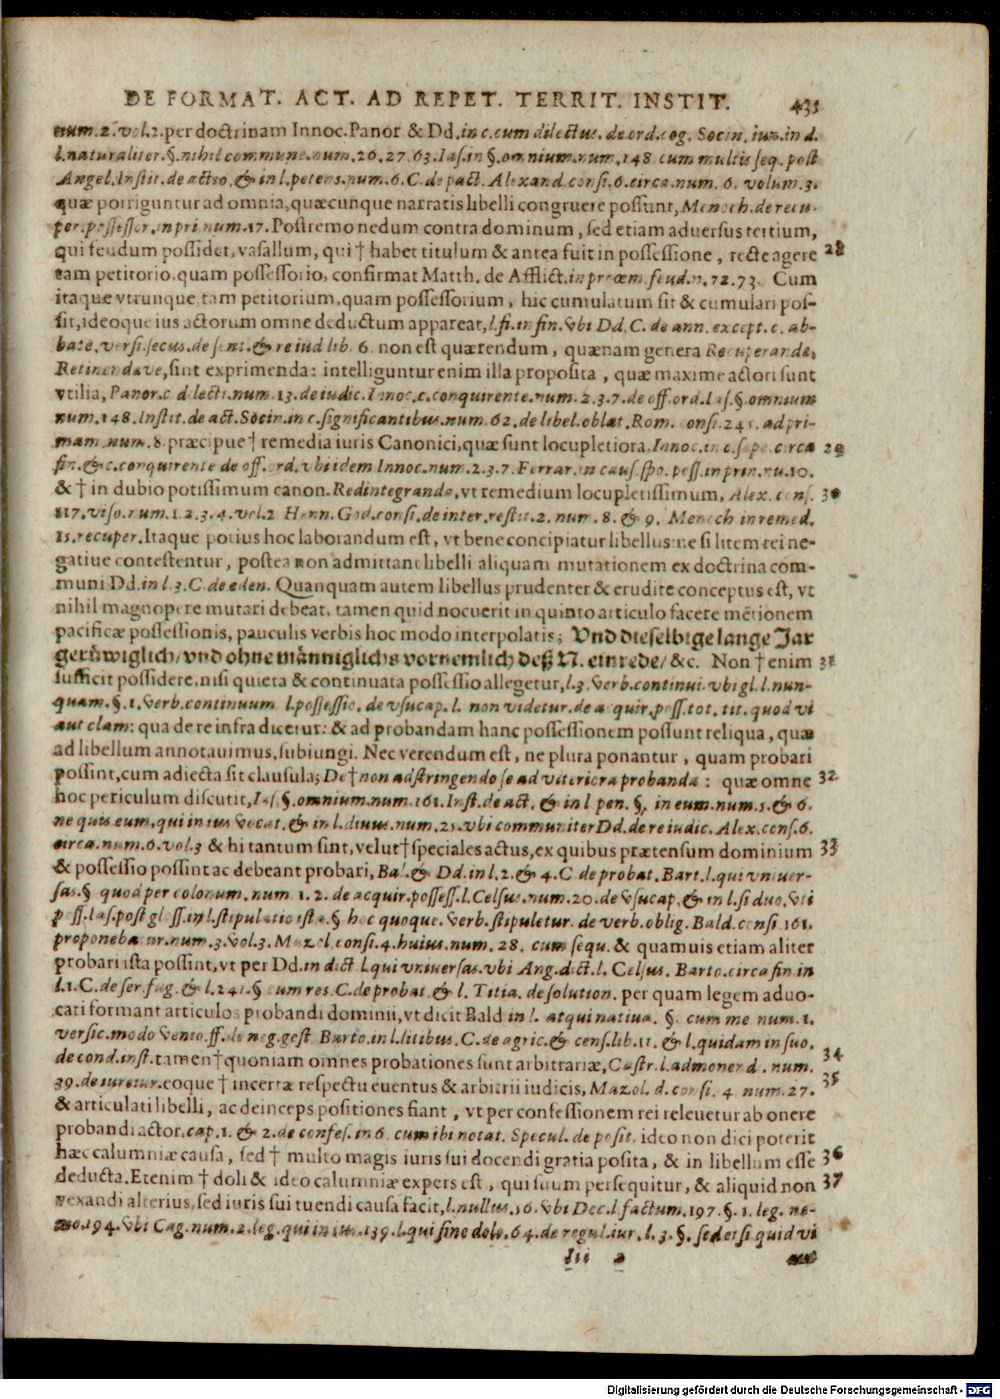 DE FORMAT. ACT. AD REPET. TERRIT. INSTIT. 435
num. 2. vol. 2. per doctrinam Innoc. Panor. & Dd. in c. cum dilectus. de ord. cog. Socin. iun. in d.
l. naturaliter. §. nihil commune. num. 26. 27. 63. Ias. in §. omnium. num. 148. cum multis seq. post
Angel. Instit. de actio. & in l. petens. num. 6. C. de pact. Alexand. consi. 6. circa. num. 6. volum. 3.
quæ porriguntur ad omnia, quæcunque narratis libelli congruere possunt, Menoch. de recu-
per. possessor. in pri num. 17. Postremo nedum contra dominum, sed etiam aduersus tertium,
qui feudum possidet, vasallum, qui † habet titulum & antea fuit in possessione, recte agere 28
tam petitorio, quam possessorio, confirmat Matth. de Afflict. in proœm. feud. n. 72. 73. Cum
itaque vtrunque, tam petitorium, quam possessorium, hic cumulatum sit & cumulari pos-
sit, ideoque ius actorum omne deductum appareat, l. fi. in fin. vbi Dd. C. de ann. except. c. ab-
bate. versi. secus. de sent. & re iud lib. 6. non est quærendum, quænam genera Recuperandæ,
Retinendæve, sint exprimenda: intelliguntur enim illa proposita, quæ maxime actori sunt
vtilia, Panor. c d lecti. num. 13. de iudic. Innoc. c. conquirente. num. 2. 3. 7. de off. ord. Ias. §. omnium
num. 148. Instit. de act. Socin. in c. significantibus. num. 62. de libel. oblat. Rom. consi. 245. ad pri-
mam. num. 8. præcipue † remedia iuris Canonici, quæ sunt locupletiora, Innoc. in c. sæpe. circa 29
fin. & c. conquirente de off. ord. vbi idem Innoc. num. 2. 3. 7. Ferrar. in caus. spo. poss. in prin. nu. 10.
& † in dubio potissimum canon. Redintegranda, vt remedium locupletissimum, Alex. cons. 30
117. viso. num. 1. 2. 3. 4. vol. 2 Henn. God. consi. de inter. restit. 2. num. 8. & 9. Menoch in remed.
15. recuper. Itaque potius hoc laborandum est, vt bene concipiatur libellus: ne si litem rei ne-
gatiue contestentur, postea non admittant libelli aliquam mutationem ex doctrina com-
muni Dd. in l. 3. C. de eden. Quanquam autem libellus prudenter & erudite conceptus est, vt
nihil magnopere mutari debeat, tamen quid nocuerit in quinto articulo facere mētionem
pacificæ possessionis, pauculis verbis hoc modo interpolatis; Vnd dieselbige lange Jar
gerüwiglich/ vnd ohne männiglichs vornemlich deß N. einrede/ &c. Non † enim 31
sufficit possidere, nisi quieta & continuata possessio allegetur, l. 3. verb. continui. vbi gl. l. nun-
quam. §. 1. verb. continuum l. possessio. de vsucap. l. non videtur. de acquir. poss. tot. tit. quod vi
aut clam: qua de re infra dicetur: & ad probandam hanc possessionem possunt reliqua, quæ
ad libellum annotauimus, subiungi. Nec verendum est, ne plura ponantur, quam probari
possint, cum adiecta sit clausula; De † non adstringendo se ad vlteriora probanda: quæ omne 32
hoc periculum discutit, Ias. §. omnium. num. 161. Inst. de act. & in l pen. §. in eum. num. 5. & 6.
ne quis eum, qui in ius vocat. & in l. diuus. num. 25. vbi communiter Dd. de re iudic. Alex. cons. 6.
circa. num. 6. vol. 3 & hi tantum sint, velut † speciales actus, ex quibus prætensum dominium 33
& possessio possint ac debeant probari, Bal. & Dd. in l. 2. & 4. C de probat. Bart. l. qui vniuer-
sas. § quod per colonum. num. 1. 2. de acquir. possess. l. Celsus. num. 20. de vsucap. & in l. si duo. vti
poss. Ias. post gloss. in l. stipulatio ista. § hoc quoque. verb. stipuletur. de verb. oblig. Bald. consi 161.
proponebatur. num. 3. vol. 3. Mazol. consi. 4. huius. num. 28. cum sequ. & quamuis etiam aliter
probari ista possint, vt per Dd. in dict. l. qui vniuersas. vbi Ang. dict. l. Celsus. Barto. circa fin in
l. 1. C. de ser. fug. & l. 241. § cum res. C. de probat. & l. Titia. de solution. per quam legem aduo-
cati formant articulos probandi dominii, vt dicit Bald in l. atqui natiua. §. cum me num. 1.
versic. modo vento. ff. de neg. gest Barto. in l. litibus. C. de agric. & cens. lib. 11. & l. quidam in suo.
de cond. inst. tamen † quoniam omnes probationes sunt arbitrariæ, Castr. l. admonend. num. 34
39. de iureiur. eoque † incertæ respectu euentus & arbitrii iudicis, Mazol. d. consi. 4 num. 27. 35
& articulati libelli, ac deinceps positiones fiant, vt per confessionem rei releuetur ab onere
probandi actor, cap. 1. & 2. de confes. in 6. cum ibi notat. Specul. de posit. ideo non dici poterit
hæc calumniæ causa, sed † multo magis iuris sui docendi gratia posita, & in libellum esse 36
deducta. Etenim † doli & ideo calumniæ expers est, qui suum persequitur, & aliquid non 37
vexandi alterius, sed iuris sui tuendi causa facit, l. nullus. 16. vbi Dec. l factum. 197. §. 1. leg. ne-
mo. 194. vbi Cag. num. 2. leg. qui in ius. 139. l. qui sine dolo. 64. de regul. iur. l. 3. §. sed et si quid vi
Iii 2
Digitalisierung gefördert durch die Deutsche Forschungsgemeinschaft - DFG